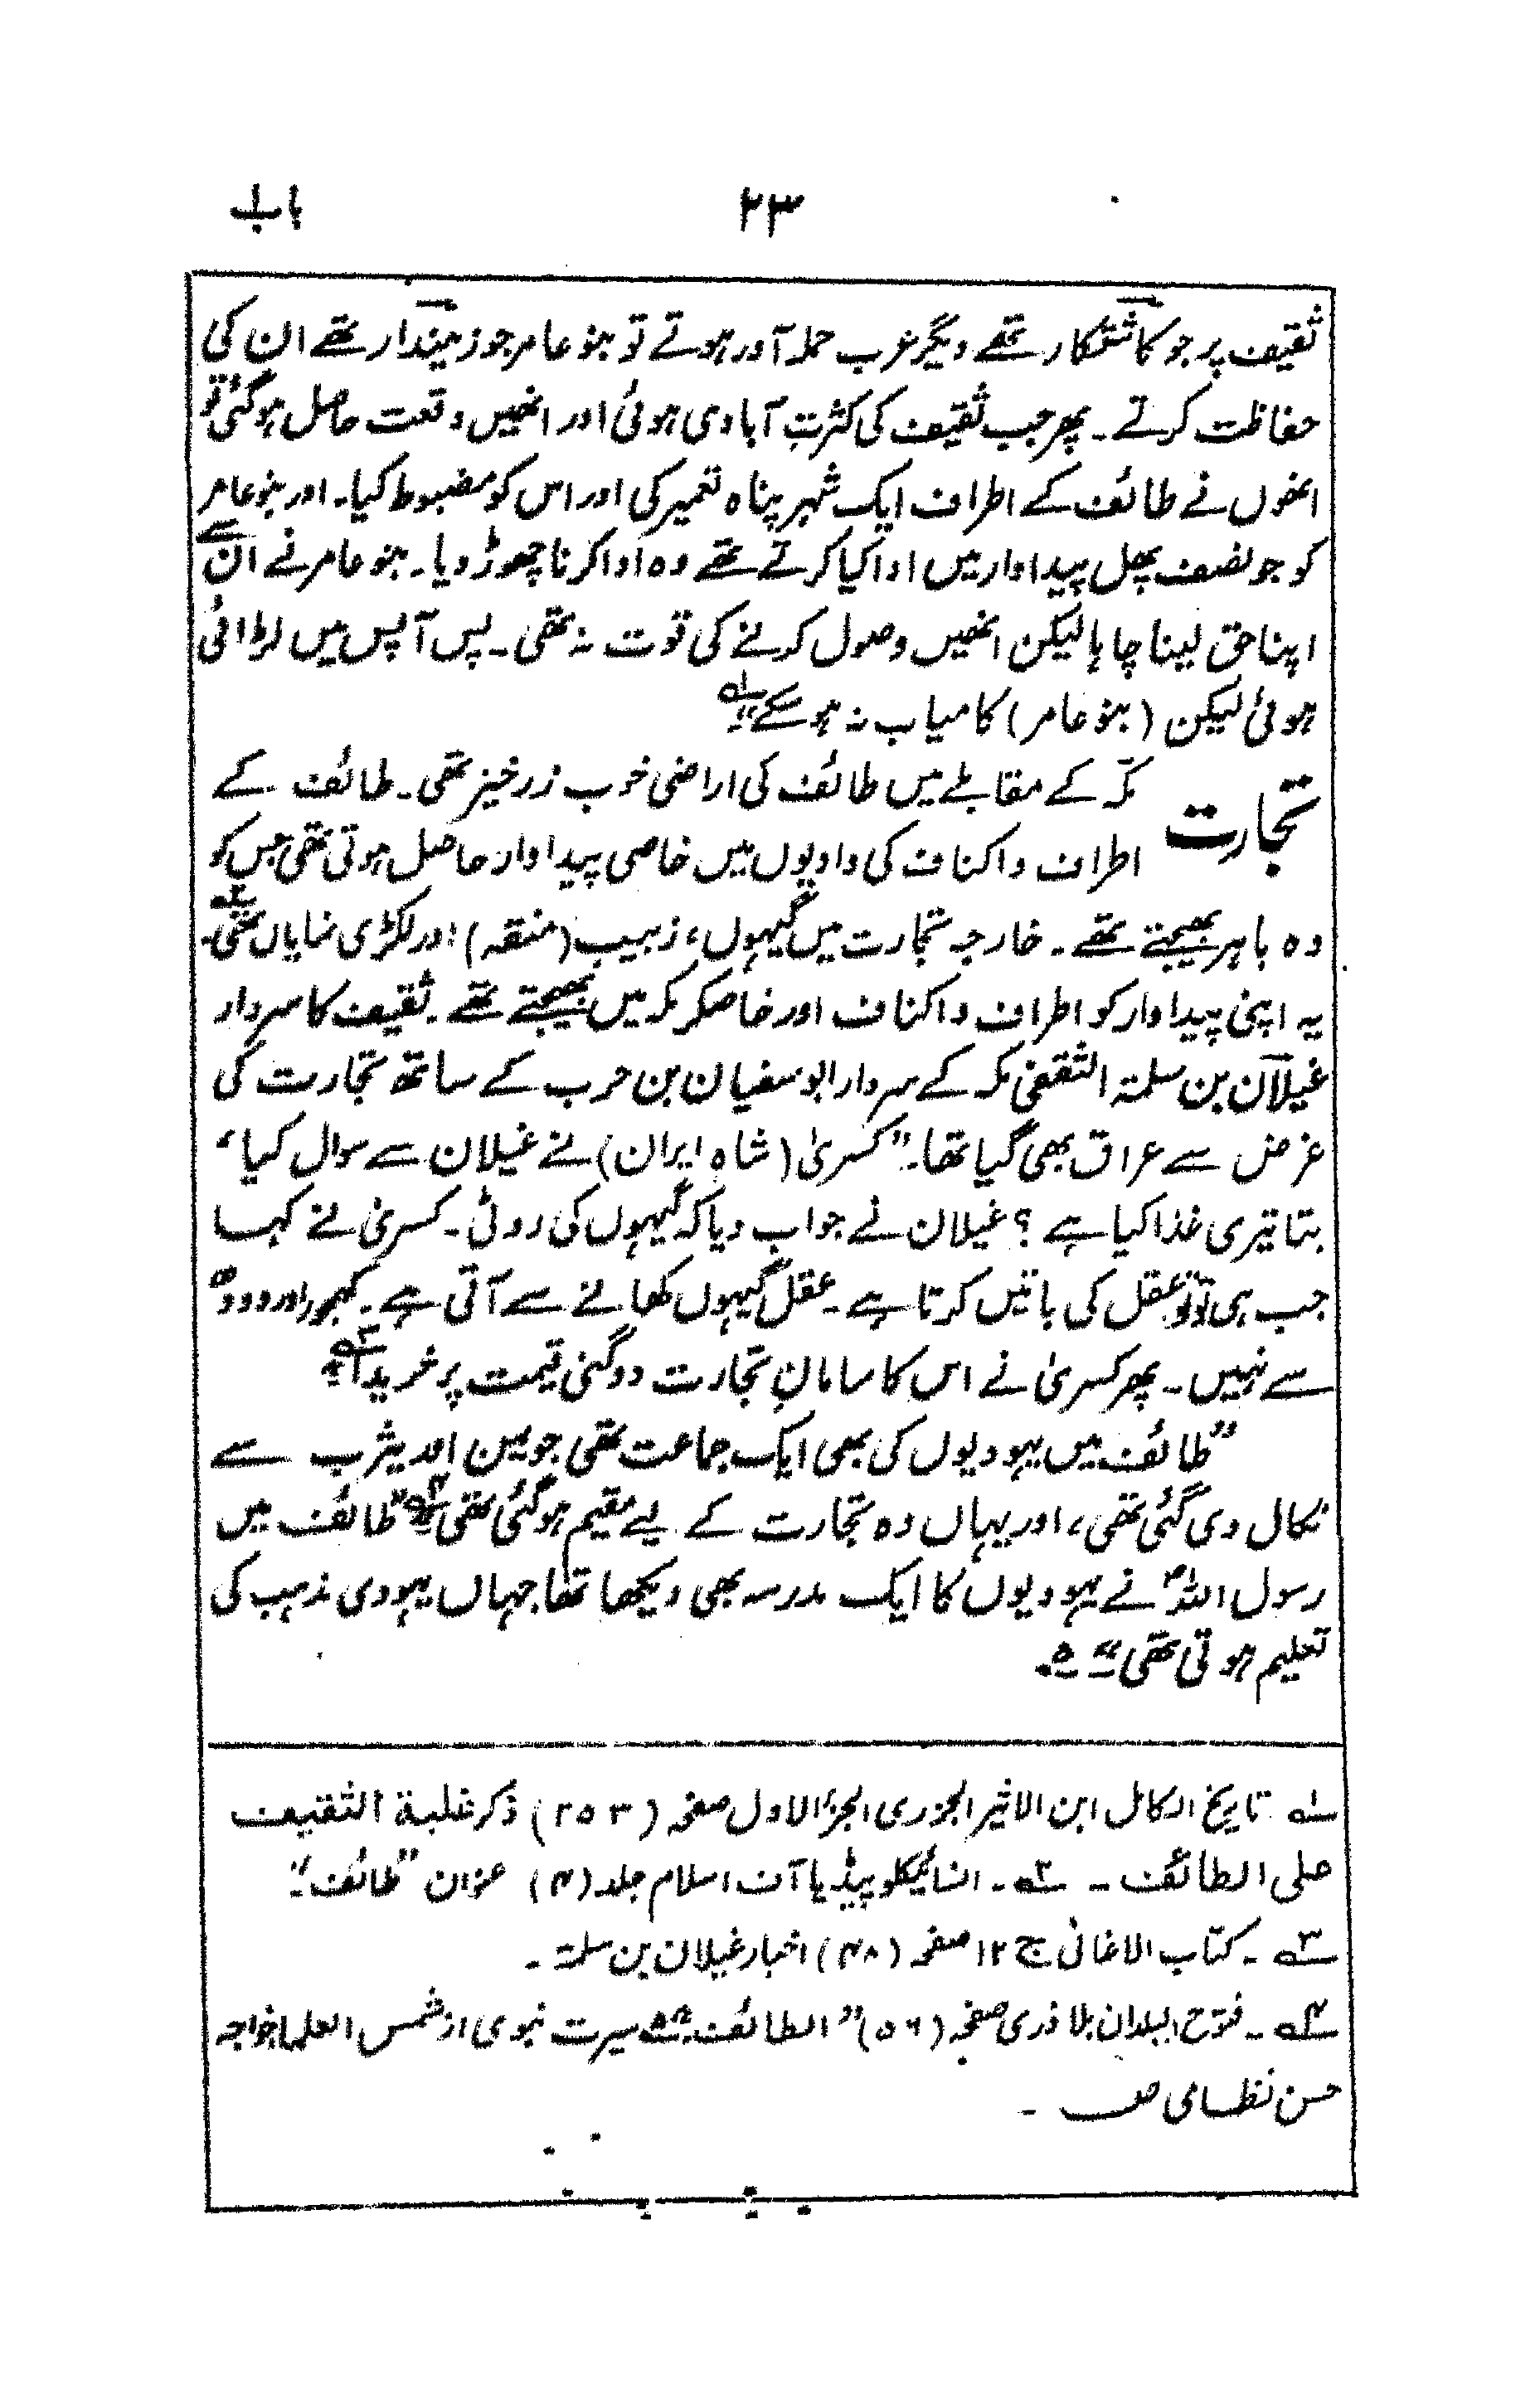 باب ۱
۲۳
ثقیف پر جو کاشتکار تھے دیگر عرب حملہ آور ہوتے تو بنو عامر جو زمیندار تھے ان کی
حفاظت کرتے ۔ پھر جب ثقیف کی کثرتِ آبادی ہوئی اور انھیں وقعت حاصل ہوگئی تو
انھوں نے طائف کے اطراف ایک شہر پناہ تعمیر کی اور اس کو مضبوط کیا ۔ اور بنو عامر
کو جو نصف پھل پیداوار میں ادا کیا کرتے تھے وہ ادا کرنا چھوڑ دیا ۔ بنو عامر نے ان سے
اپنا حق لینا چاہا لیکن انھیں وصول کرنے کی قوت نہ تھی ۔ پس آپس میں لڑائی
ہوئی لیکن (بنو عامر) کامیاب نہ ہو سکے“ ۱؎
تجارت
مکّہ کے مقابلے میں طائف کی اراضی خوب زرخیز تھی ۔ طائف کے
اطراف و اکناف کی وادیوں میں خاصی پیداوار حاصل ہوتی تھی جس کو
وہ باہر بھیجتے تھے ۔ خارجہ تجارت میں گیہوں، زبیب (منقہ) اور لکڑی نمایاں تھی ۲؎۔
یہ اپنی پیداوار کو اطراف و اکناف اور خاصکر مکہ میں بھیجتے تھے ۔ ثقیف کا سردار
غیلان بن سلمۃ الثقفی مکہ کے سردار ابو سفیان بن حرب کے ساتھ تجارت کی
غرض سے عراق بھی گیا تھا ۔ ”کسریٰ (شاہ ایران) نے غیلان سے سوال کیا،
بتا تیری غذا کیا ہے ؟ غیلان نے جواب دیا کہ گیہوں کی روٹی ۔ کسریٰ نے کہا
جب ہی تو تو عقل کی باتیں کرتا ہے ۔ عقل گیہوں کھانے سے آتی ہے ۔ کھجور اور دودھ
سے نہیں ۔ پھر کسریٰ نے اس کا سامانِ تجارت دوگنی قیمت پر خریدا“ ۳؎
”طائف میں یہودیوں کی بھی ایک جماعت تھی جو یمن اور یثرب سے
نکال دی گئی تھی، اور یہاں وہ تجارت کے لیے مقیم ہوگئی تھی“ ۴؎ ”طائف میں
رسول اللہؐ نے یہودیوں کا ایک مدرسہ بھی دیکھا تھا جہاں یہودی مذہب کی
تعلیم ہوتی تھی“ ۵؎
۱؎ تاریخ الکامل ابن الاثیر الجزری الجزء الاول صفحہ (۲۵۳) ذکر غلبۃ الثقیف
علی الطائف ۔ ۲؎ ۔ انسائیکلوپیڈیا آف اسلام جلد (۴) عنوان ”طائف“
۳؎ ۔ کتاب الاغانی ج ۱۲ صفحہ (۴۸) اخبار غیلان بن سلمۃ ۔
۴؎ ۔ فتوح البلدان بلاذری صفحہ (۵۶) ”الطائف“ ۵؎ سیرت نبوی از شمس العلما خواجہ
حسن نظامی صفـ ۔